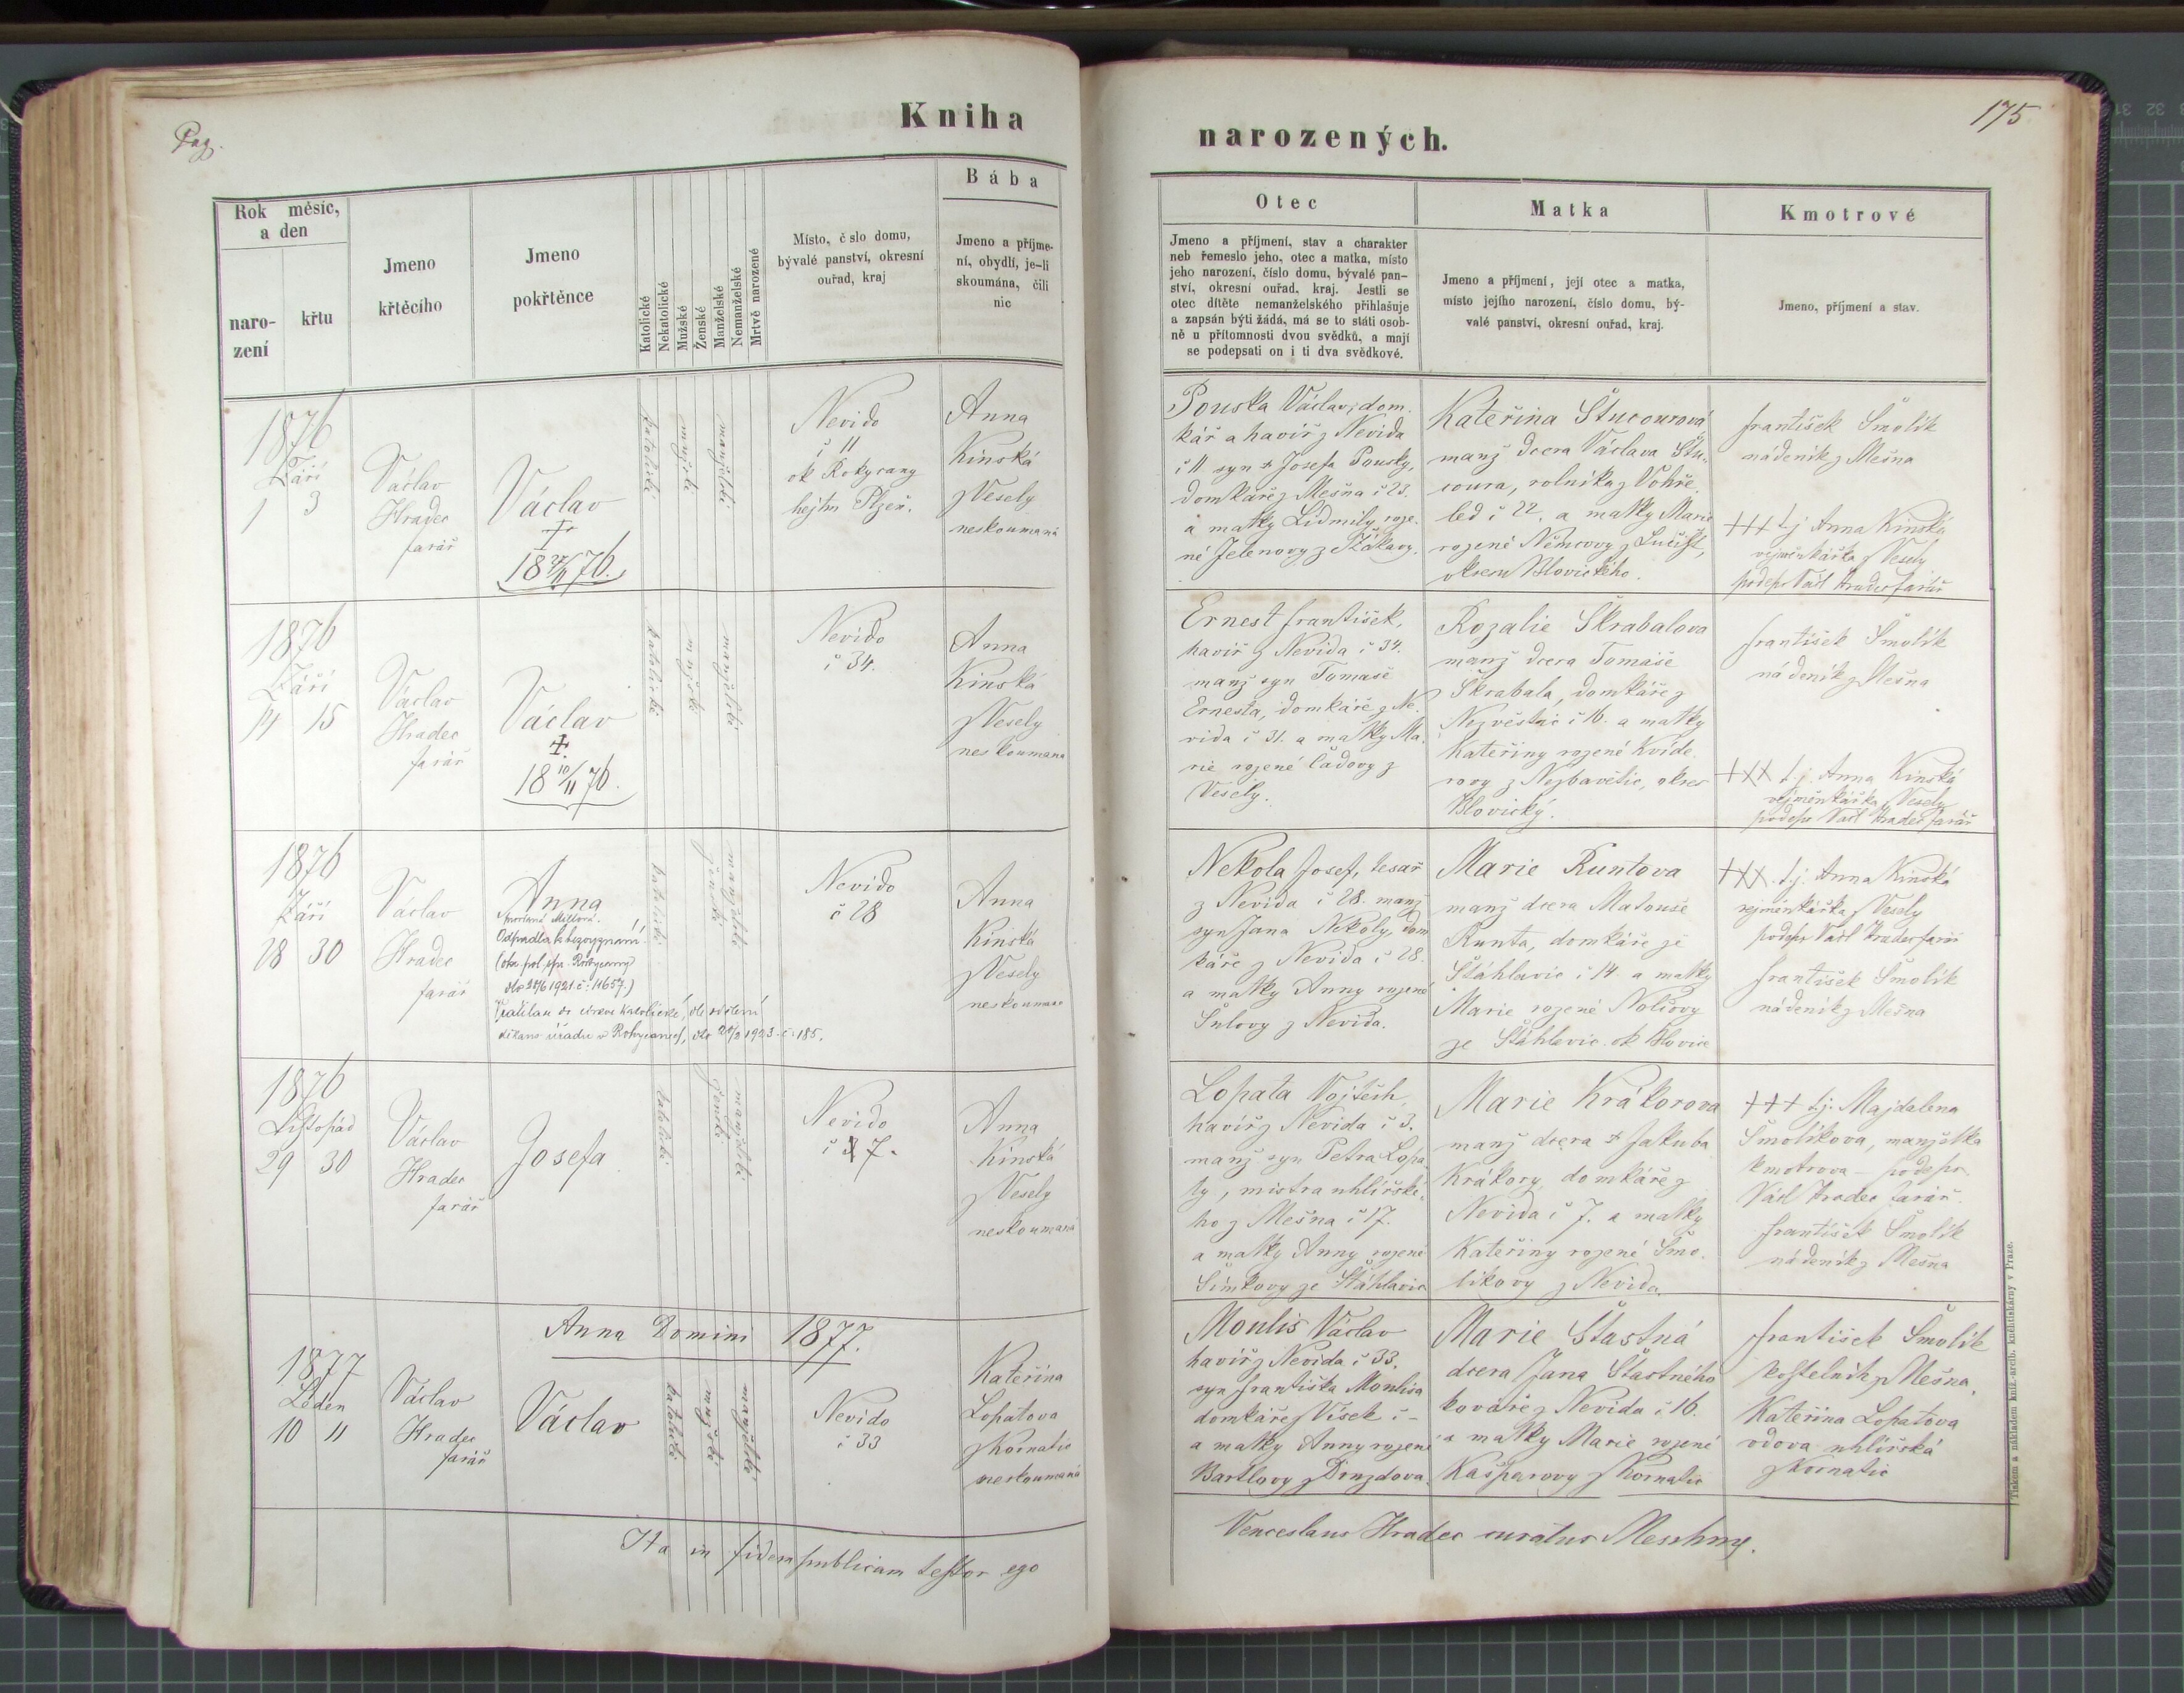 Pag.
Kniha
Rok měsíc,
a den
naro-
zení
křtu
Jmeno
křtěcího
Jmeno
pokřtěnce
Katolické
Nekatolické
Mužské
Ženské
Manželské
Nemanželské
Mrtvě narozené
Místo, č slo domu,
bývalé panství, okresní
ouřad, kraj
Bába
Jmeno a příjme-
ní, obydlí, je-li
skoumána, čili
nic
1876
Září
1 3
Václav
Hradec
farář
Václav
†
18 76.
katolické
mužské
manželské
Nevido
č 11
ok Rokycany
hejtm Plzeň.
Anna
Kinská
z Vesely
neskoumaná
1876
Září
14 15
Václav
Hradec
farář
Václav
†
18 10/11 76.
katolické
mužské
manželské
Nevido
č 34.
Anna
Kinská
z Vesely
neskoumana
1876
Září
28 30
Václav
Hradec
farář
Anna
Odpadla k bezvyznání
1921 č: 11657.)
do církve katolické, dle sdělení
děkans úřadu v Rokycanech, dto 1923 č: 185.
katolické
ženské
manželské
Nevido
č 28
Anna
Kinská
z Vesely
neskoumana
1876
Listopád
29 30
Václav
Hradec
farář
Josefa
katolické
ženské
manželské
Nevido
č 7.
Anna
Kinská
z Vesely
neskoumaná
Anna Domini 1877.
1877
Leden
10 11
Václav
Hradec
farář
Václav
katolické
mužské
manželské
Nevido
č 33
Kateřina
Lopatova
z Kornatic
neskoumaná
Ita in fidem publicam testor ego
175
narozených.
Otec
Jmeno a příjmení, stav a charakter
neb řemeslo jeho, otec a matka, místo
jeho narození, číslo domu, bývalé pan-
ství, okresní ouřad, kraj. Jestli se
otec dítěte nemanželského přihlašuje
a zapsán býti žádá, má se to státi osob-
ně u přítomnosti dvou svědků, a mají
se podepsati on i ti dva svědkové.
Matka
Jmeno a příjmení, její otec a matka,
místo jejího narození, číslo domu, bý-
valé panství, okresní ouřad, kraj.
Kmotrové
Jmeno, příjmení a stav.
Pouska Václav, dom.
kář a havíř z Nevida
č 11 syn † Josefa Pousky,
domkáře z Mešna č 23.
a matky Lidmily roze.
né Jelenovy z Ždákavy.
Kateřina Štucourová
manž dcera Václava Štu.
coura, rolníka z Vohře.
led č 22. a matky Marie
rozené Němcovy z Lučišt,
okresu Blovického.
František Smolík
nádeník z Mešna
+++ t.j Anna Kinská
vejměnkářka z Vesely
podeps Václ Hradec farář
Ernest František,
havíř z Nevida č 34.
manž syn Tomáše
Ernesta, domkáře z Ne.
vida č 31. a matky Ma.
rie rozené Čadovy z
Vesely.
Rozalie Škrabalova
manž dcera Tomáše
Škrabala, domkáře z
Nezvěstic č 16. a matky
Kateřiny rozené Kvíde.
rovy z Nezbavětic, okres
Blovický.
František Smolík
nádeník z Mešna
+++ t.j. Anna Kinská
vejměnkářka z Vesely
podeps Václ Hradec farář
Nekola Josef, tesař
z Nevida č 28. manž
syn Jana Nekoly, dom
káře z Nevida č 28.
a matky Anny rozené
Šulovy z Nevida.
Marie Runtova
manž dcera Matouše
Runta, domkáře ze
Štáhlavic č 14. a matky
Marie rozené Noličovy
ze Štáhlavic ok Blovice
+++ t.j. Anna Kinská
vejměnkářka z Vesely
podeps Václ Hradec farář
František Smolík
nádeník z Mešna
Lopata Vojtěch,
havíř z Nevida č 3.
manž syn Petra Lopa.
ty, mistra uhlířské.
ho z Mešna č 17.
a matky Anny rozené
Šimkovy ze Štáhlavic
Marie Krákorova
manž dcera † Jakuba
Krákory domkáře z
Nevida č 7. a matky
Kateřiny rozené Smo.
líkovy z Nevida.
+++ t.j. Majdalena
Smolíkova, manželka
kmotrova – podeps.
Václ Hradec farář.
František Smolík
nádeník z Mešna
Moulis Václav
havíř z Nevida č 33,
syn Františka Moulisa
domkáře z Vísek č –
a matky Anny rozené
Bartlovy z Drozdova.
Marie Šťastná
dcera Jana Šťastného
kováře z Nevida č 16.
a matky Marie rozené
Kašparovy z Kornatic
František Smolík
kostelník z Mešna,
Kateřina Lopatova
vdova uhlířská
z Kornatic
Venceslaus Hradec curatus Meschny.
Tiskem a nákladem kníž.-arcib. knihtiskárny v Praze.